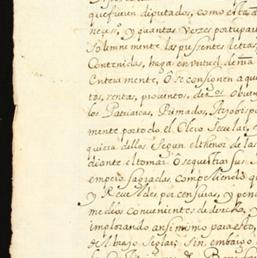 que fueren diputados, como esta d
nejo, y quantas vezes por tu par
solemnemente, las presentes letras,
Contenidas, haga en virtud de nra
Enteramente, O se consignen a qu
tos, rentas, proventos, derechos Obven
los Patriarcas, Primados, Arçobisp
mente por todo el Clero Secular,
quiera dellos, segun el thenor de las
diante el tomar, O sequestrar sus
empero sagradas compeliendo que
y Rebeldes, por censuras, y pen
medios convenientes de derecho, y
implorando ansi mismo para esto,
del braço seglar, Sin embargo